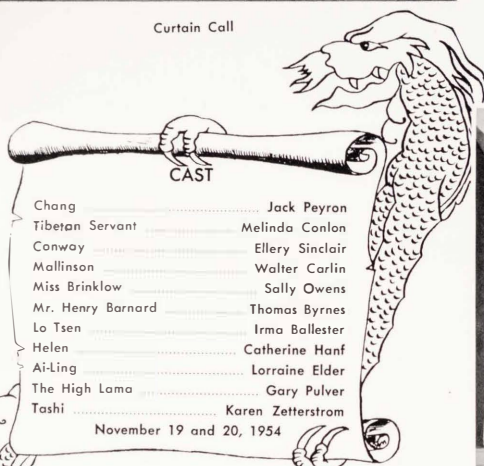 Curtain Call
CAST
Chang Jack Peyron
Tibetan Servant Melinda Conlon
Conway Ellery Sinclair
Mallinson Walter Carlin
Miss Brinklow Sally Owens
Mr. Henry Barnard Thomas Byrnes
Lo Tsen Irma Ballester
Helen Catherine Hanf
Ai-Ling Lorraine Elder
The High Lama Gary Pulver
Tashi Karen Zetterstrom
November 19 and 20, 1954